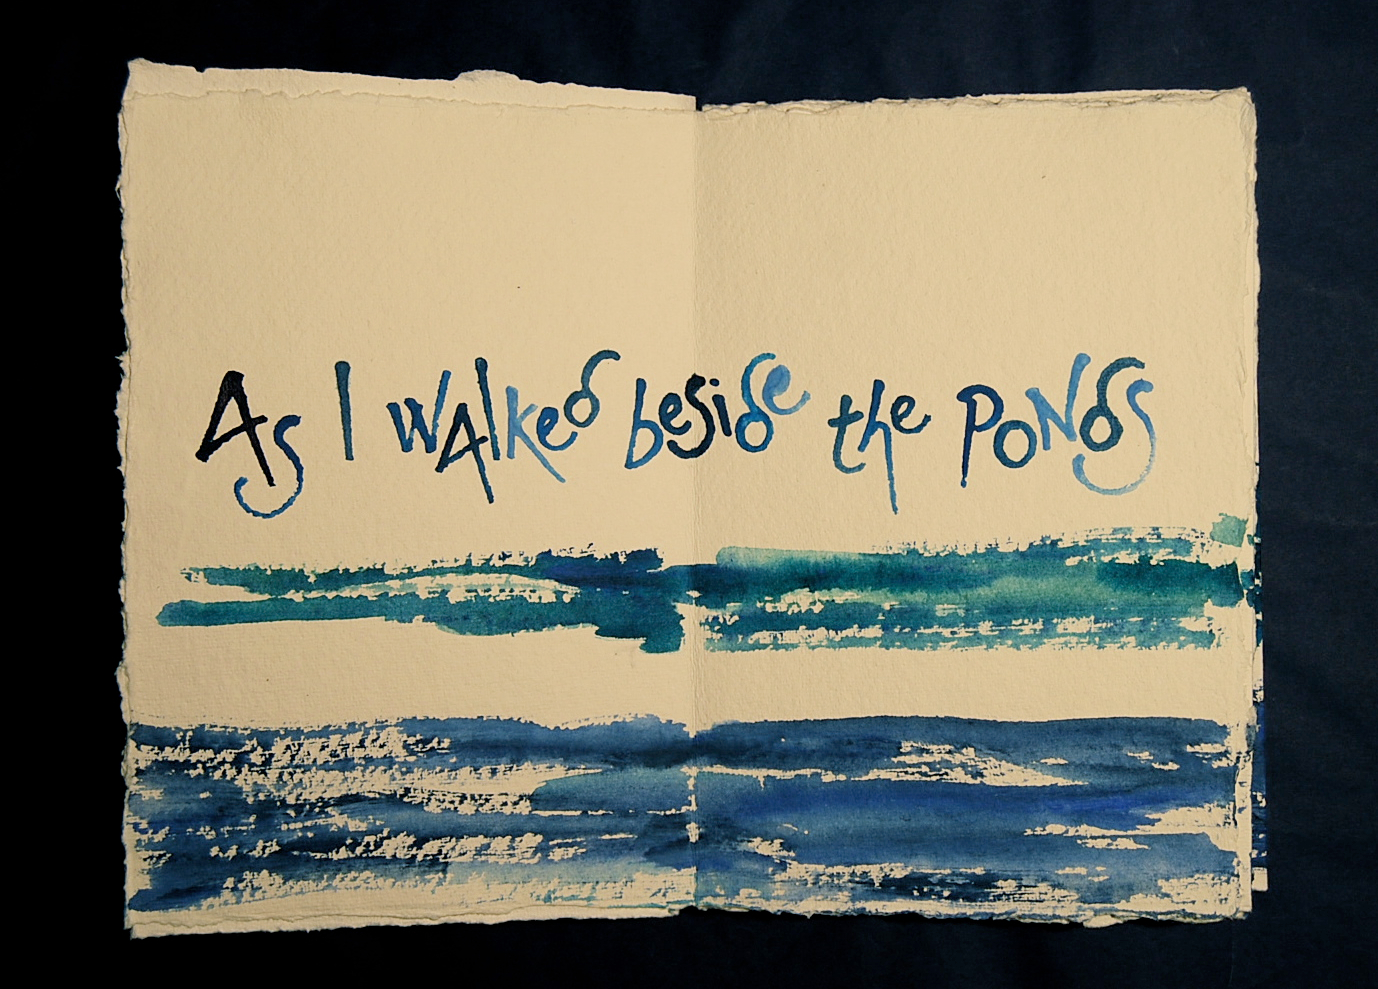 As I walked beside the Ponds